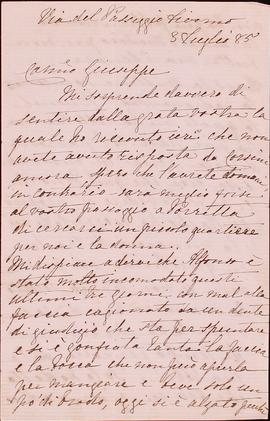 Via del Passeggio Livorno
3 Luglio 85
Carmo Giuseppe
Mi sorprende davvero di
sentire dalla grata vostra la
quale ho ricevuto ieri che non
avete avuto risposta da Corsini
ancora spero che l'avrete domani
in contrario sarà meglio
al vostro passaggio a Porretta
di cercarci un piccolo quartiere
per noi e la donna.
Mi dispiace a dirvi che Alfonso è
stato molto incomodato questi
ultimi tre giorni, con mal alla
faccia cagionato da un dente
di giudizio che sta per spuntare
e si è gonfiata tanto la faccia
e la bocca che non può aprirla
per mangiare e beve solo un
po' di brodo, oggi si è alzato